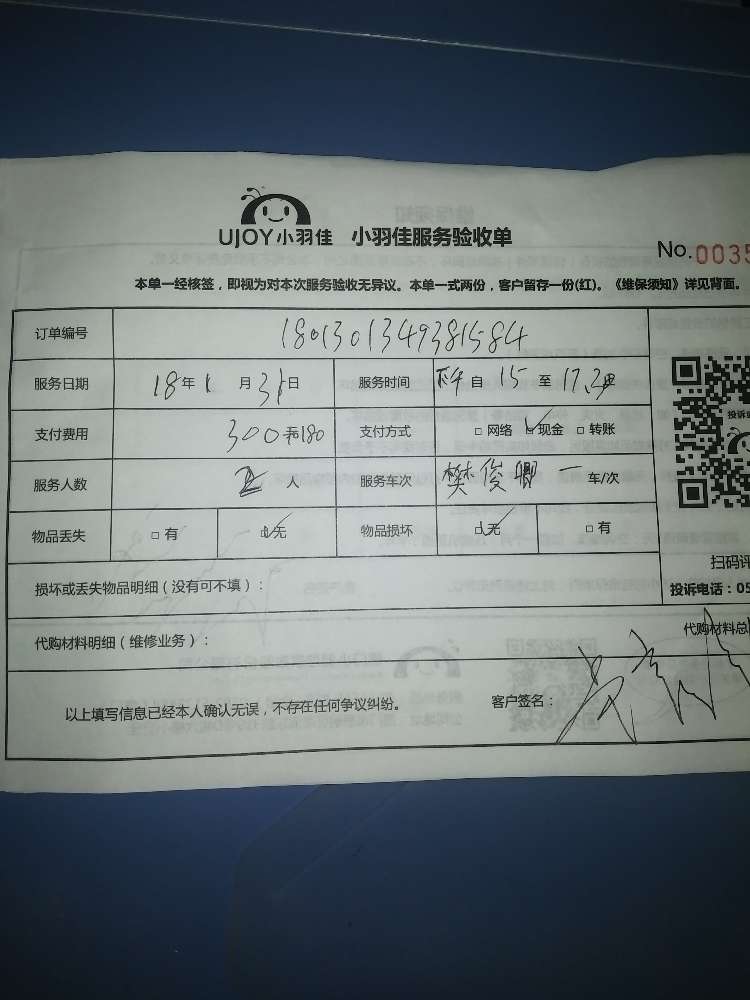 UJOY小羽佳 小羽佳服务验收单
No.0035
本单一经核签，即视为对本次服务验收无异议。本单一式两份，客户留存一份(红)。《维保须知》详见背面。
订单编号 18013013493815 84
服务日期 18年1月31日 服务时间 自15至17.
支付费用 300 180 支付方式 □网络 现金 □转账
服务人数 2人 服务车次 樊俊卿 一 车/次
物品丢失 □有 □无 物品损坏 □无 □有
投诉
扫码评
损坏或丢失物品明细（没有可不填）： 投诉电话：05
代购材料明细（维修业务）： 代购材料总
以上填写信息已经本人确认无误，不存在任何争议纠纷。 客户签名：